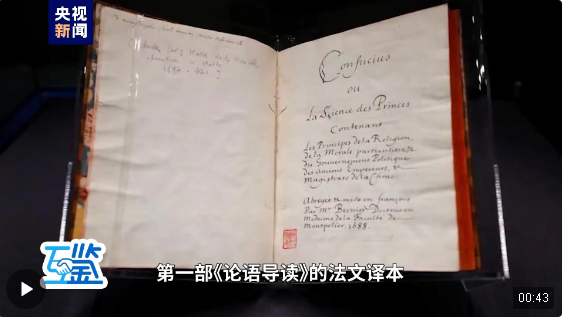 央视
新闻
Confucius
ou
La Science des Princes
Contenant
Les Principes de la Religion,
de la Morale particuliere,
du Gouvernement Politique
des anciens Empereurs, &
Magistrats de la Chine.
Abregée & mise en françois
Par Mr Bernier Docteur en
Medecine de la Faculté de
Montpelier, 1688.
互鉴
第一部《论语导读》的法文译本
00:43